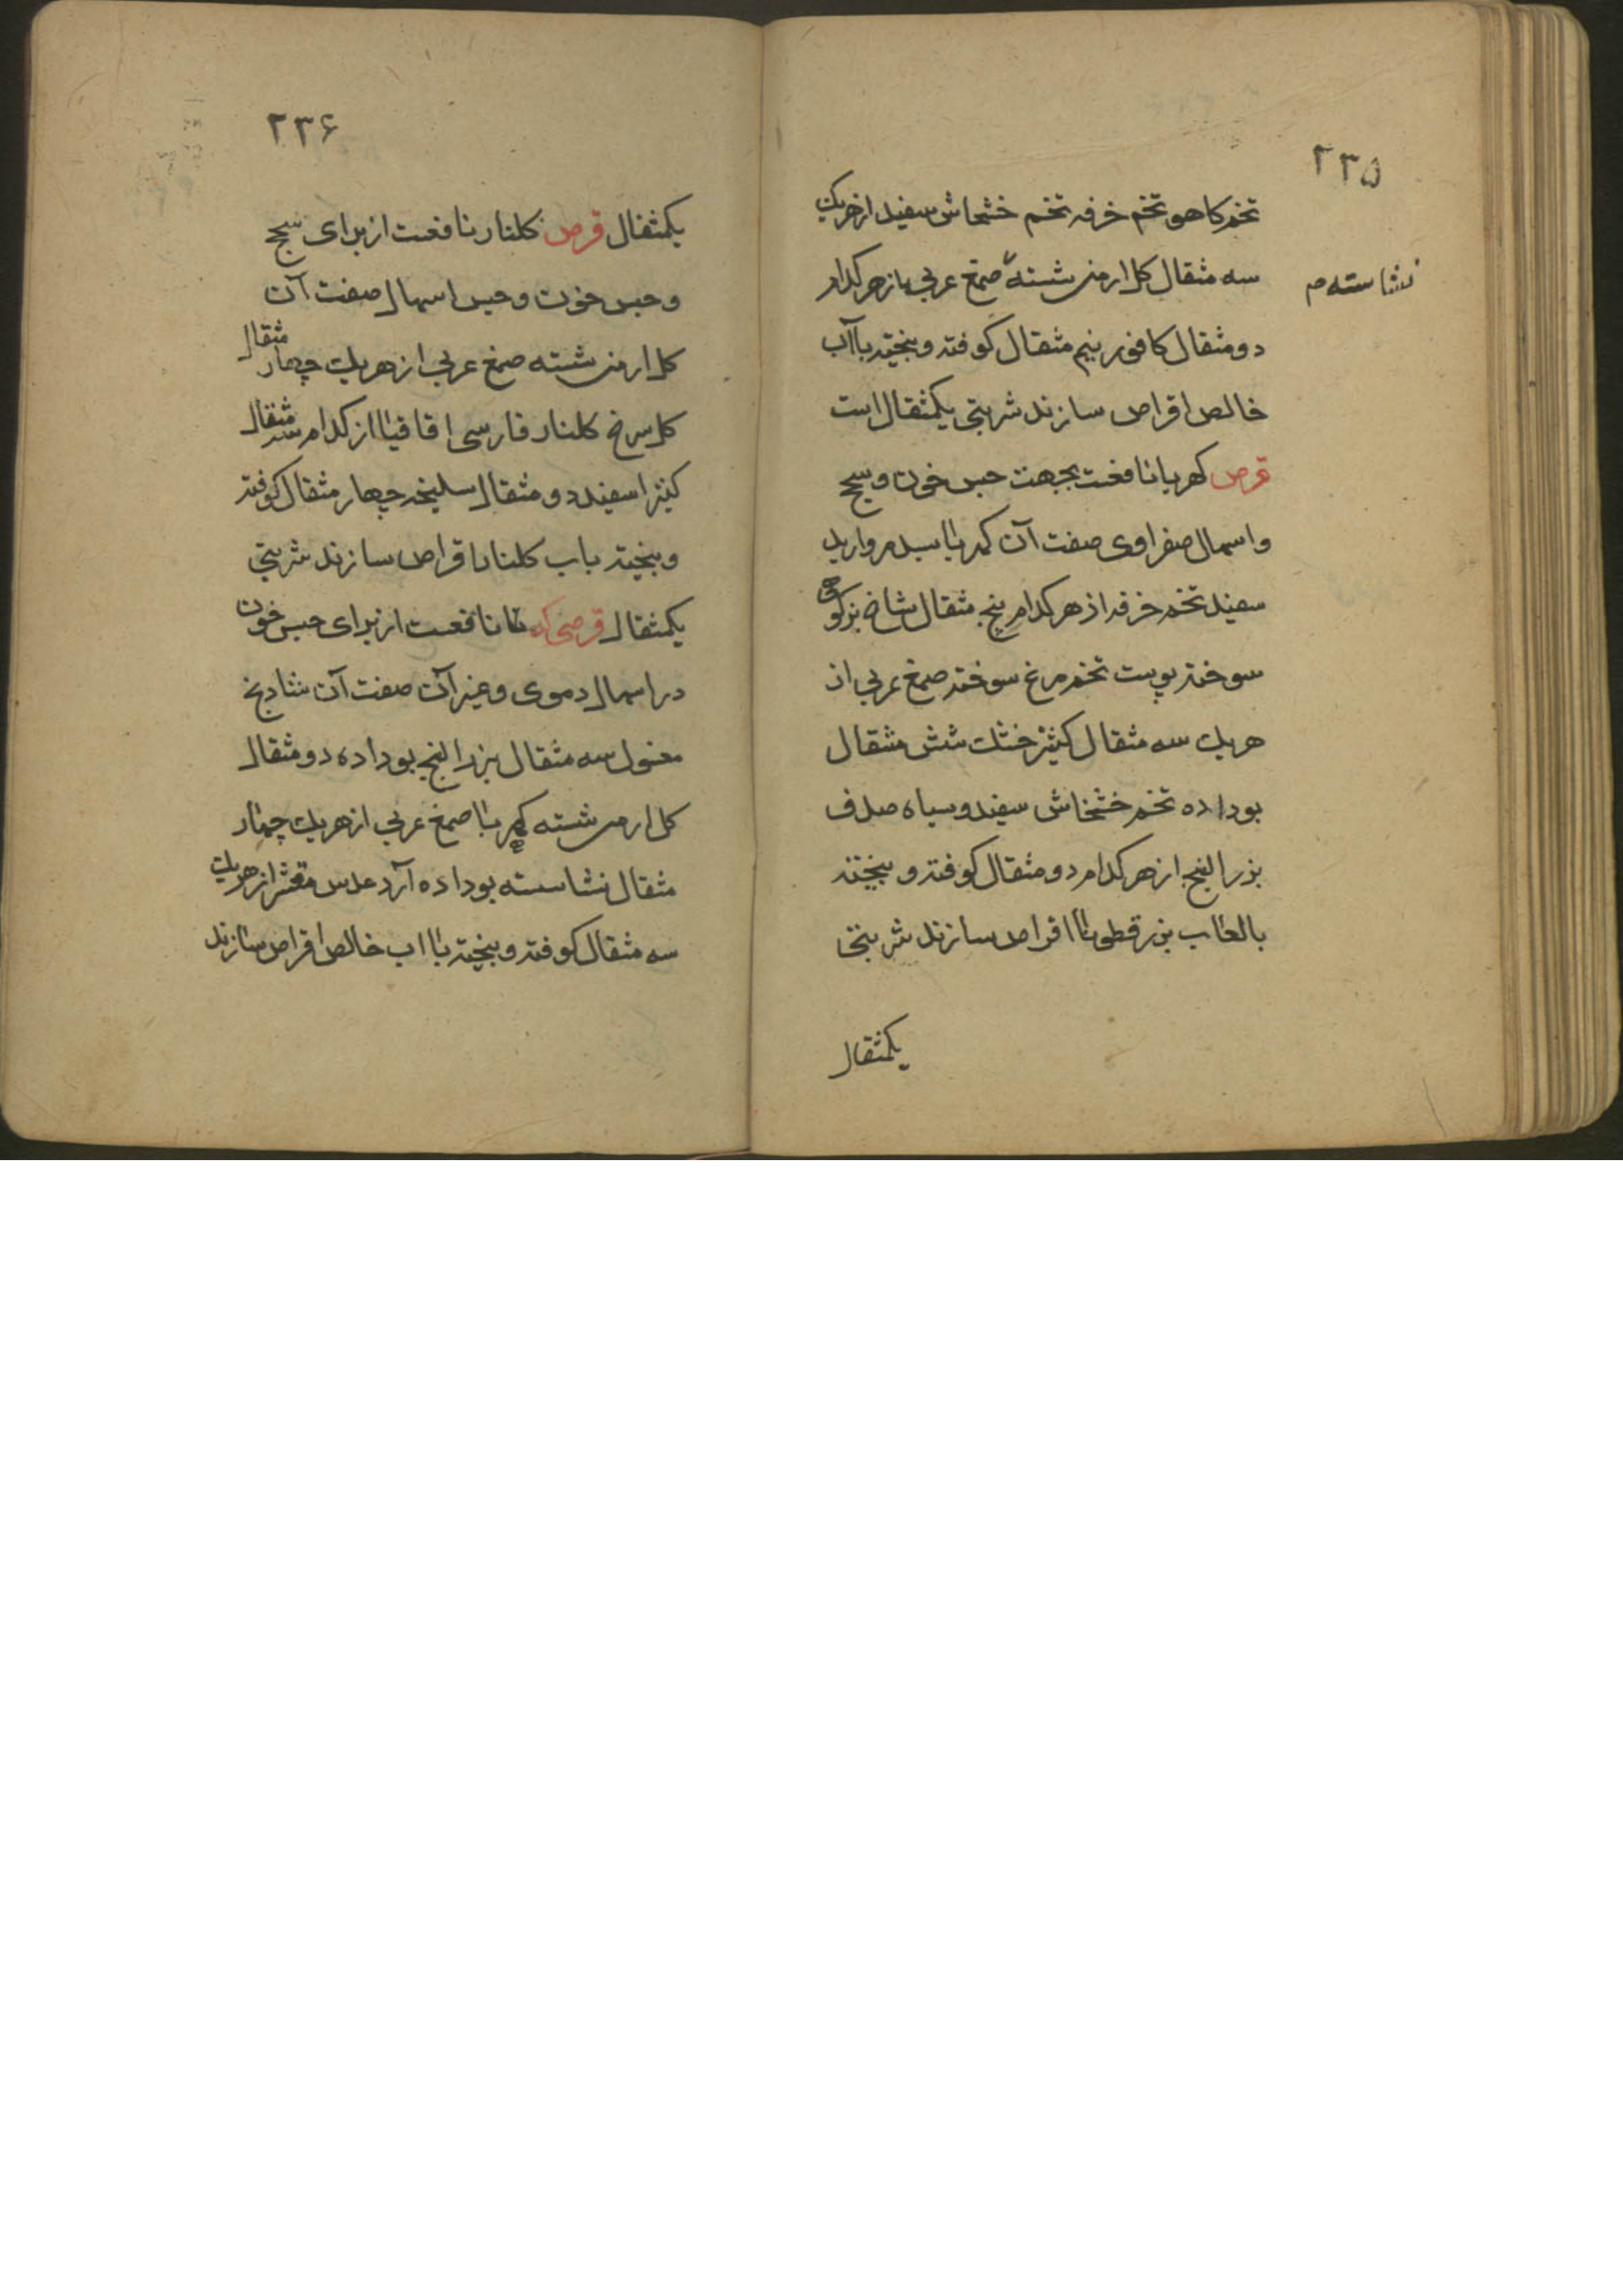 ۲۳۵
تخم کاهو تخم خرفه تخم خشخاش سفید از هریك
سه مثقال کل ارمنی شسته صمغ عربی از هر کدام
نشاسته م
دو مثقال کافور نیم مثقال کوفته و بیخته باآب
خالص اقراص سازند شربتی یکمثقال است
قرص کهربا نافعست بجهت حبس خون و سحج
و اسهال صفراوی صفت آن کهربا بسد مروارید
سفید تخم خرفه از هر کدام پنج مثقال شاخ بز کوهی
سوخته پوست تخم مرغ سوخته صمغ عربی از
هریك سه مثقال کشنیز خشك شش مثقال
بوداده تخم خشخاش سفید و سیاه صدف
بزرالبنج از هر کدام دو مثقال کوفته و بیخته
بالعاب بزرقطونا اقراص سازند شربتی
یکمثقال
۲۳۶
یکمثقال قرص کلنار نافعست از برای سحج
و حبس خون و حبس اسهال صفت آن
کل ارمنی شسته صمغ عربی از هریك چهار مثقال
کل سرخ کلنار فارسی اقاقیا از کدام سه مثقال
کتیرا سفید دو مثقال سلیخه چهار مثقال کوفته
و بیخته باب کلنار اقراص سازند شربتی
یکمثقال قرص نافعست از برای حبس خون
در اسهال دموی و غیر آن صفت آن شادنج
مغسول سه مثقال بزرالبنج بوداده دو مثقال
کل ارمنی شسته کهربا صمغ عربی از هریك چهار
مثقال نشاسته بوداده آرد عدس مقشر از هریك
سه مثقال کوفته و بیخته با اب خالص اقراص سازند